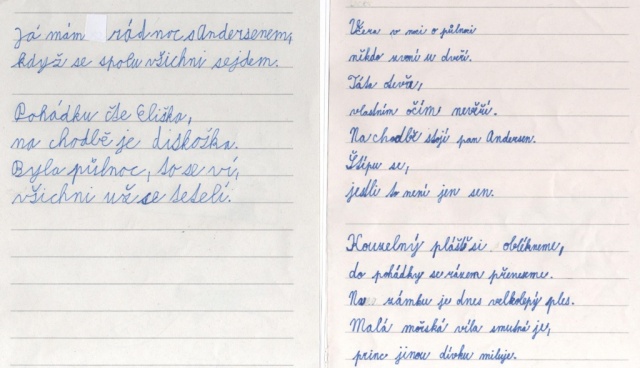 Já mám rád noc s Andersenem,
když se spolu všichni sejdem.
Pohádku čte Eliška,
na chodbě je diskoška.
Byla půlnoc, to se ví,
všichni už se tetelí.
Včera v noci o půlnoci
někdo zvoní u dveří.
Táta dveře,
vlastním očím nevěří.
Na chodbě stojí pan Andersen.
Štípu se,
jestli to není jen sen.
Kouzelný plášť si oblékneme,
do pohádky se rázem přeneseme.
Na zámku je dnes velkolepý ples.
Malá mořská víla smutná je,
princ jinou dívku miluje.